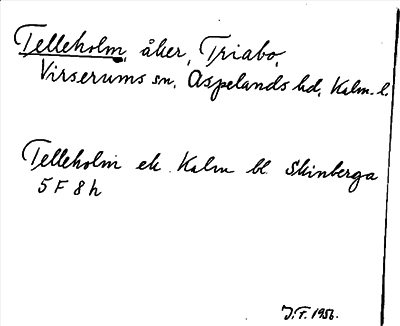 Telleholm, åker, Triabo,
Virserums sn, Aspelands hd, Kalm. l.
Telleholm ek. Kalm bl. Skinberga
5 F 8 h
J.F. 1956.